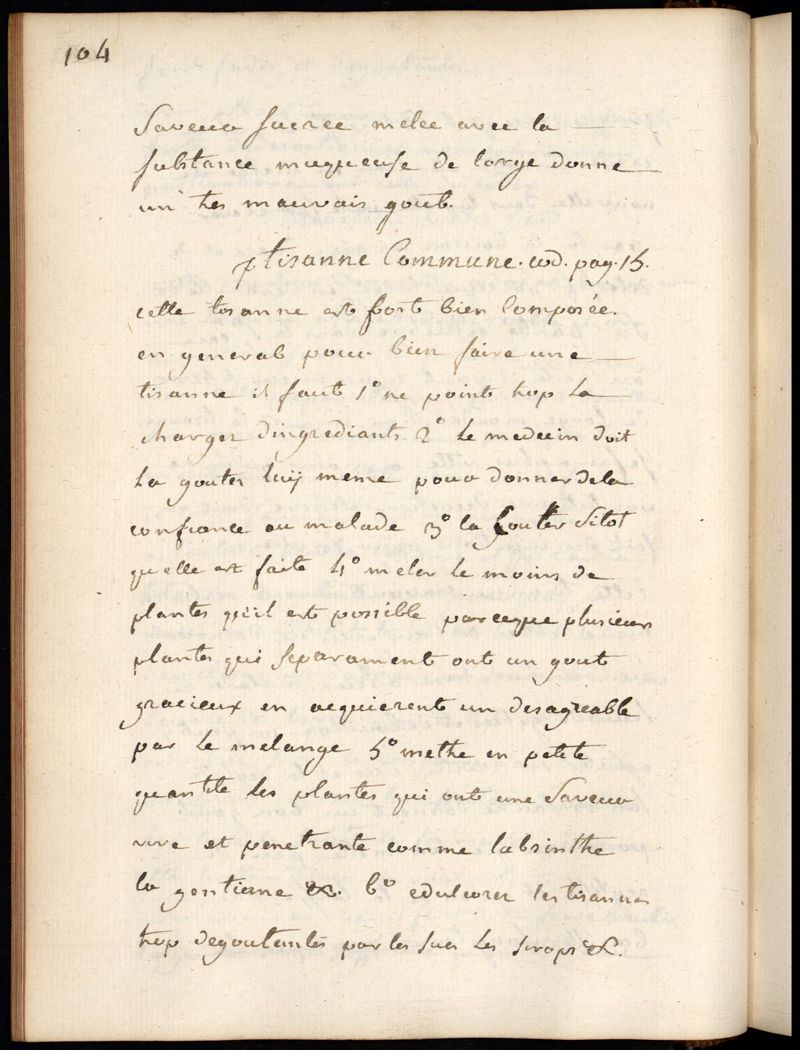 104
Saveur sucree melee avec la
substance muqueuse de lorge donne
un tres mauvais gout.
ptisanne Commune. cod. pag. 15.
cette tisanne est fort bien composée.
en general pour bien faire une
tisanne il faut 1° ne point trop la
charger dingrediants 2° le medecin doit
la gouter luy meme pour donner de la
confiance au malade 3° la gouter sitot
quelle est faite 4° meler le moins de
plantes qu'il est possible parceque plusieurs
plantes qui separament ont un gout
gracieux en acquierent un desagreable
par le melange 5° mettre en petite
quantite les plantes qui ont une saveur
vive et penetrante comme labsinthe
la gentianne &c. 6° edulcorer les tisannes
trop degoutantes par les sucs les sirops &c.